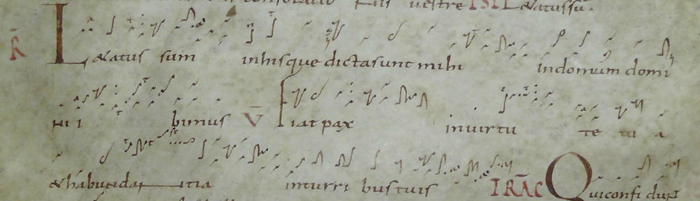 consolatio eius vestre ISII Laetatus su.
R Laetatus sum inhisque dictasunt mihi indomum domi
ni ibimus V Fiat pax invirtu te tu a
&habundantia inturri bustuis TRAC Qui confidunt